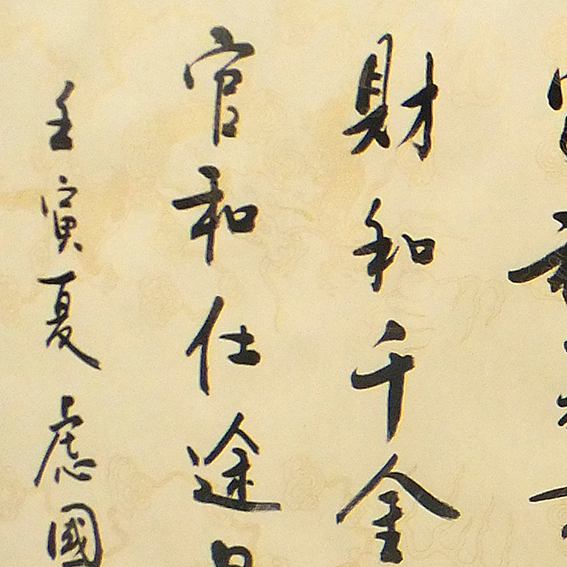 財和千金
官和仕途
壬寅夏慮國